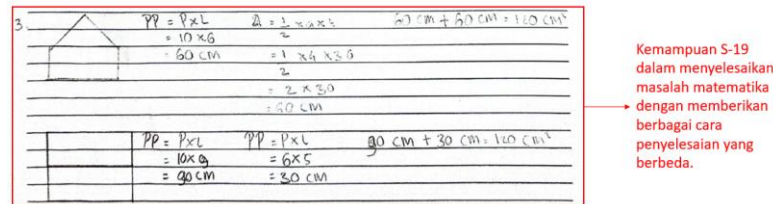 3. PP = PxL
= 10 x 6
= 60 cm
Δ = 1/2 x a x t
= 1/2 x 4 x 30
= 2 x 30
= 60 cm
60 cm + 60 cm = 120 cm²
PP = PxL
= 10x9
= 90 cm
PP = PxL
= 6x5
= 30 cm
90 cm + 30 cm = 120 cm²
Kemampuan S-19
dalam menyelesaikan
masalah matematika
dengan memberikan
berbagai cara
penyelesaian yang
berbeda.